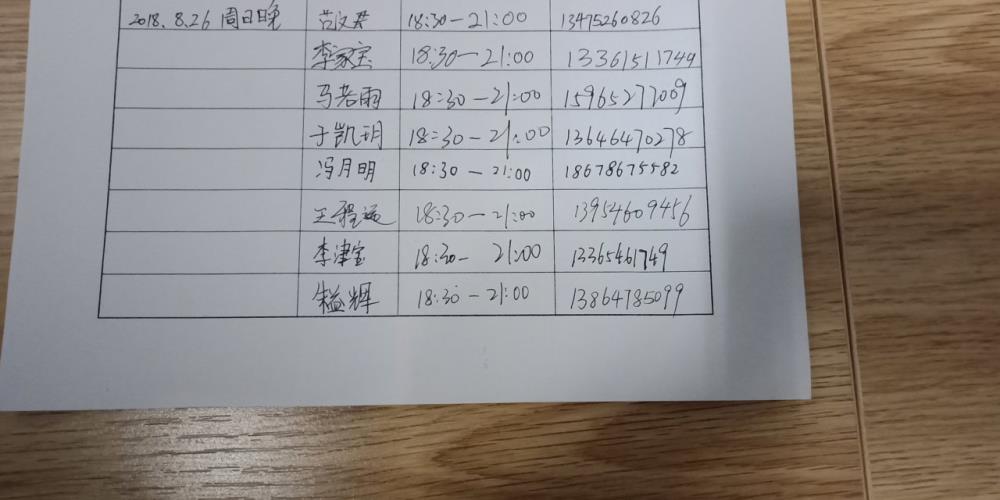 2018.8.26 周日晚 范汶君 18:30-21:00 13475260826
李家宝 18:30-21:00 13361511749
马若雨 18:30-21:00 15965277009
于凯玥 18:30-21:00 13646470278
冯月明 18:30-21:00 18678675582
王程远 18:30-21:00 13954609456
李津宝 18:30-21:00 13365461749
朱益辉 18:30-21:00 13864785099